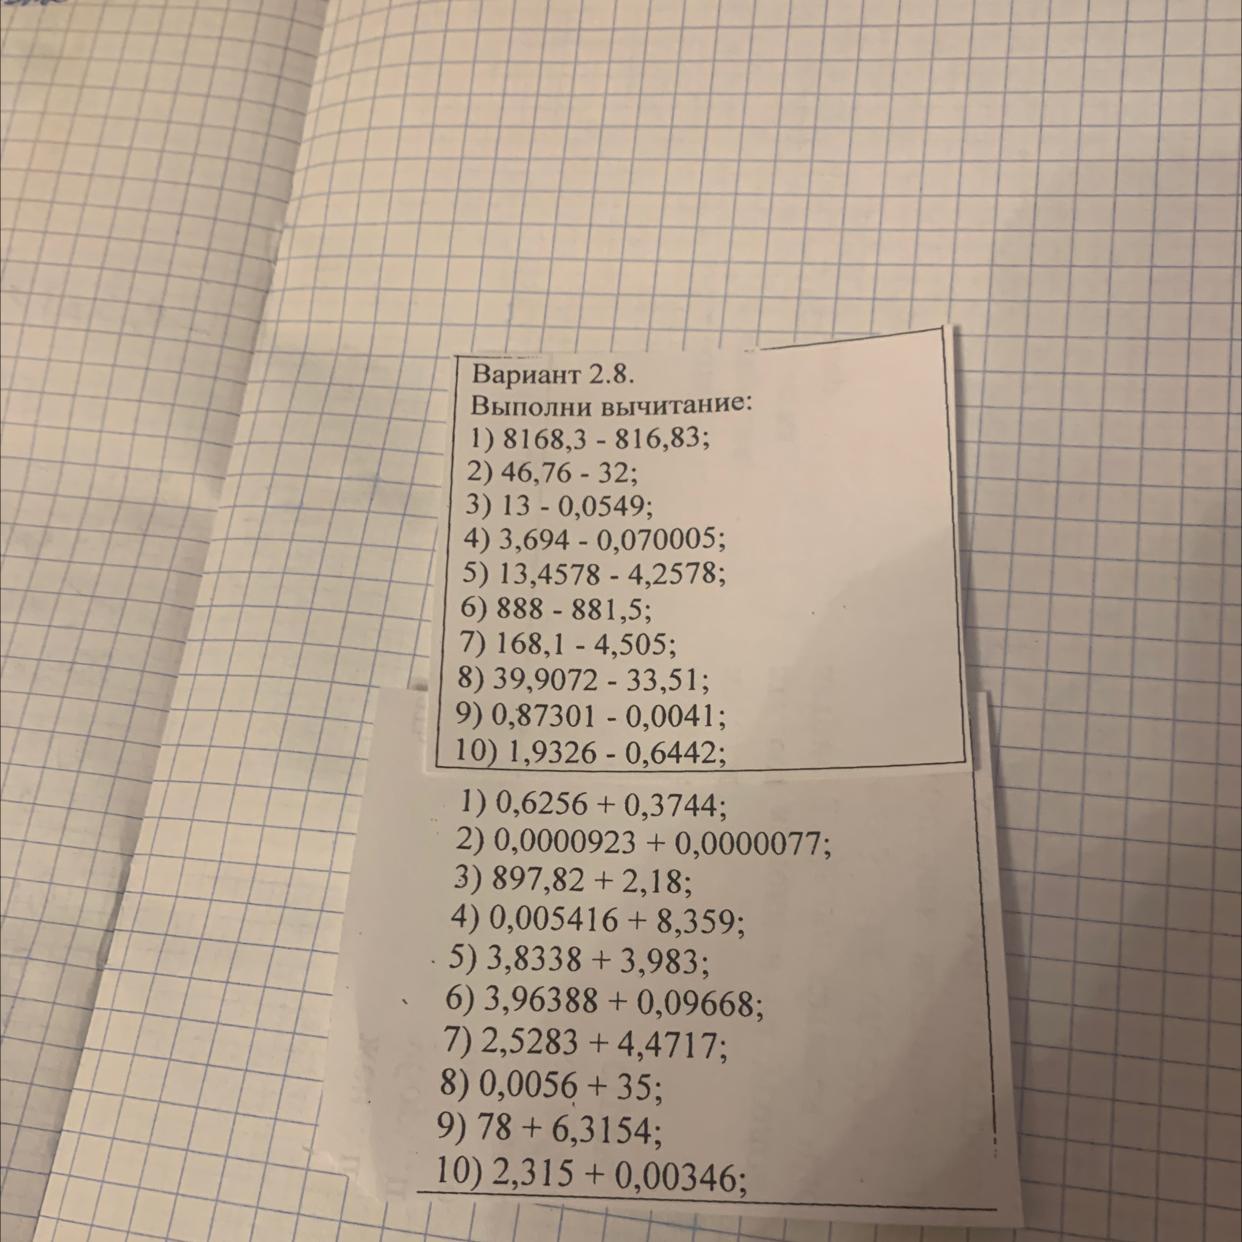 Вариант 2.8.
Выполни вычитание:
1) 8168,3 - 816,83;
2) 46,76 - 32;
3) 13 - 0,0549;
4) 3,694 - 0,070005;
5) 13,4578 - 4,2578;
6) 888 - 881,5;
7) 168,1 - 4,505;
8) 39,9072 - 33,51;
9) 0,87301 - 0,0041;
10) 1,9326 - 0,6442;
1) 0,6256 + 0,3744;
2) 0,0000923 + 0,0000077;
3) 897,82 + 2,18;
4) 0,005416 + 8,359;
5) 3,8338 + 3,983;
6) 3,96388 + 0,09668;
7) 2,5283 + 4,4717;
8) 0,0056 + 35;
9) 78 + 6,3154;
10) 2,315 + 0,00346;